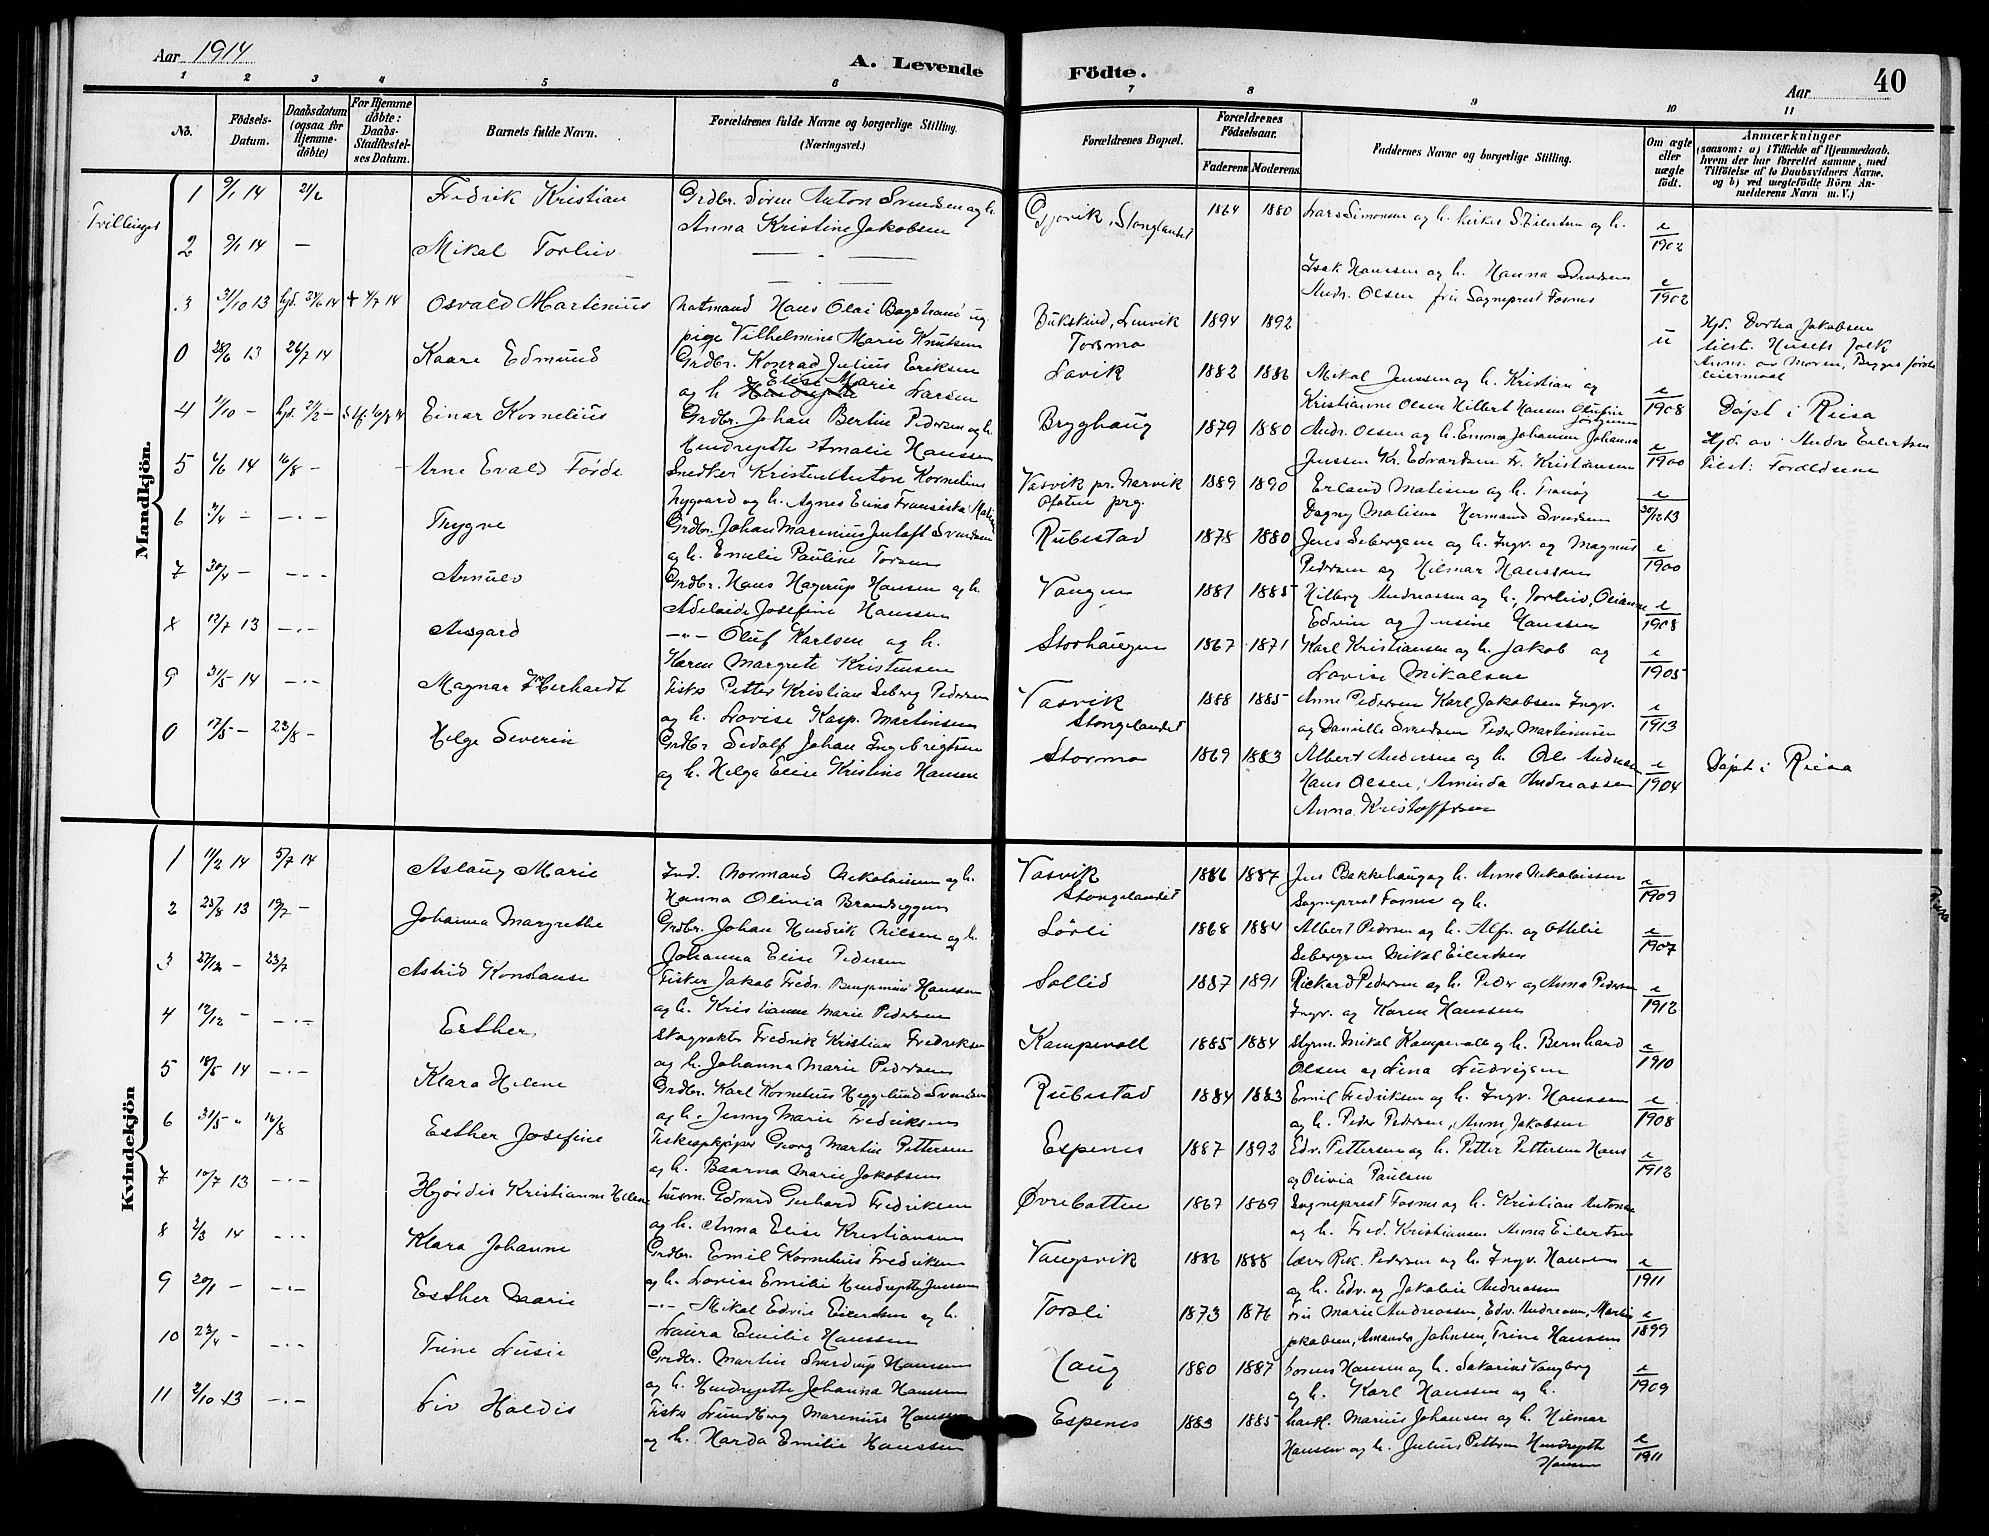 Aar 1914
A. Levende Födte.
Aar
40
1 2 3 4 5 6 7 8 9 10 11
No.
Födsels-Datum.
Daabsdatum (ogsaa for Hjemmedöbte)
For Hjemmedöbte: Daabs-Stadfæstelses Datum.
Barnets fulde Navn.
Forældrenes fulde Navne og borgerlige Stilling. (Næringsvei.)
Forældrenes Bopæl.
Forældrenes Födselsaar.
Faderens Moderens
Faddernes Navne og borgerlige Stilling.
Om ægte eller uægte födt.
Anmærkninger
(saasom: a) i Tilfælde af Hjemmedaab, hvem der har forrettet samme, med Tilföielse af to Daabsvidners Navne. og b) ved uægtefödte Börn Anmelderens Navn m. V.)
Mandkjön.
Tvillinger
1 9/1 14 Fredrik Kristian Grdbr. Sören Anton Svendsen og h.
Anna Kristine Jakobsen
Gjøvik, Stonglandet 1864 1880 Lars Simonsen og h.
e/1902
2 9/1 14 — Mikal Torleiv
Isak Hanssen og h. Hanna Svendsen
Andr. Olsen fru Sogneprest Fosnes e/1902
3 31/10 13 Osvald Martinius Hans Olai
pige Vilhelmine Marie Knutsen
Lenvik Torsmo 1894 1892 u Hjd. Dortea Jakobsen
tilst. Husets folk
0 28/6 13 26/7 14 Kaare Edmund Grdbr. Konrad Julius Eriksen
og h. Elise Marie Larsen
Lavik 1882 1886 Mikal Jenssen og h. Kristian og
Kristianne Olsen Hilbert Hansen e/1908 Døpt i Reisa
4 Einar Kornelius Grdbr. Johan Bertin Pedersen og h.
Hendrejette Amalie Hanssen
Bryghaug 1879 1880 Andr. Olsen og h. Emma Johansen Johanna
Jenssen Kr. Edvardsen Fr. Kristiansen e/1900 Hjd. av Andr Eilertsen
Tilst: Forældrene
5 6/6 14 16/8 — Arne Evald Förde Snedker Kristen Anton Kornelius
Nygaard og h. Agnes Elina Fransiska
Vasvik pr. Narvik
Ofoten prg. 1889 1890 Erland Matisen og h. Tranöy
Dagny Matisen Hermand Svendsen e/30/12 13
6 3/4 - —.— Trygve Grdbr. Johan Marenius Svendsen
og h. Emelie Pauline Torsen
Rubestad 1878 1880 Jens Sebergsen og h. Ingv. og Magnus
Pedersen og Hilmar Hanssen e/1900
7 30/4 - —.— Arnulv Grdbr. Hans Hagerup Hansen og h.
Adelaide Josefine Hanssen
Vangen 1881 1885 Hilberg Andreassen og h. Torleiv, Oianna
Edvin og Jensine Hanssen e/1908
8 12/7 13 —.— Ansgard —"— Oluf Karlsen og h.
Karen Margrete Kristensen
Storhaugen 1867 1871 Karl Kristiansen og h. Jakob og
Lovise Mikalsen e/1905
9 31/5 14 —.— Magnar Gerhardt Fisker Petter Kristian Seberg Pedersen
og h. Lovise Kasp. Martinsen
Vasvik
Stongelandet 1888 1885 Anne Pedersen Karl Jakobsen Ingv.
og Danielle Svendsen Peder Martinsen e/1913
0 17/5 — 23/8 — Helge Severin Grdbr Sedolf Johan Ingebrigtsen
og h. Helga Elise Kristine Hansen
Stormo 1869 1883 Albert Andersen og h. Ole Andreas
Hans Olsen, Aminda Andreassen
Anna Kristoffersen e/1904 Døpt i Reisa
Kvindekjön
1 11/2 14 5/7 14 Aslaug Marie Ind. Normand Nikolaisen og h.
Hanna Olivia Brandseggen
Vasvik
Stongelandet 1886 1887 Jens Bakkehaug og h. Anna Nikolaisen
Sogneprest Fosnes og h. e/1909
2 25/8 13 19/7 — Johanna Margrethe Grdbr. Johan Hendrik Nilsen og h.
Johanna Elise Pedersen
Lörli 1868 1884 Albert Pedersen og h. Alfr. og Ottelie
Sebergsen Mikal Eilertsen e/1907
3 27/12 - 23/7 Astrid Konstanse Fisker Jakob Fredr. Benjamin Hanssen
og h. Kristianne Marie Pedersen
Sollid 1887 1891 Rickard Pedersen og h. Peder og Anna Pedersen
Ingv. og Karen Hanssen e/1912
4 12/12 - —.— Esther Skogvokter Fredrik Kristian Fredriksen
og h. Johanna Marie Pedersen
Kampevoll 1885 1884 Styrm. Mikal Kampevoll og h. Bernhard
Olsen og Lina Ludvigsen e/1910
5 18/5 14 —.— Klara Helene Grdbr. Karl Kornelius Heggelund Svendsen
og h. Jenny Marie Fredriksen
Rubestad 1884 1883 Emil Fredriksen og h. Ingv. Hanssen
og h. Peder Pedersen, Anna Jakobsen e/1908
6 31/5 " 16/8 Esther Josefine Fiskeopkjøper Georg Martin Pettersen
og h. Baarna Marie Jakobsen
Espenes 1887 1892 Edv. Pettersen og h. Petter Pettersen Hans
og Olivia Paulsen e/1912
7 10/7 13 —.— Hjørdis Kristianne Helene husm. Edvard Gerhard Fredriksen
og h. Anna Elise Kristiansen
Øvre Botten 1867 1869 Sogneprest Fosnes og h. Kristian Antonsen
og h. Fred. Kristiansen Anna Eilertsen
8 2/3 14 —.— Klara Johanne Grdbr. Emil Kornelius Fredriksen
og h. Lovise Emilie Hendrejette Jensen
Vangsvik 1886 1888 Rik. Pedersen og h. Ingv. Hansen
og h. Edv. og Jakobine Andreassen e/1911
9 20/1 - —.— Esther Marie —"— Mikal Edvin Eilertsen og h.
Laura Emilie Hanssen
Torsli 1873 1876 fru Marie Andreassen, Edv. Andreassen, Martin
Jakobsen, Amanda Johnsen, Trine Hanssen e/1899
10 23/4 - —.— Trine Lusie Grdbr. Martin Sverdrup Hanssen
og h. Hendrejette Johanna Hansen
Haug 1880 1887 Hansen og h. Sakarias Vangberg
og h. Karl Hanssen og h. e/1909
11 2/10 13 —.— Liv Haldis Fisker Lundberg Marenius Hansen
og h. Harda Emilie Hanssen
Espenes 1883 1885 Marius Johansen og h. Hilmar
Hansen og h. Julius Pettersen Hendrejette
Hansen e/1911